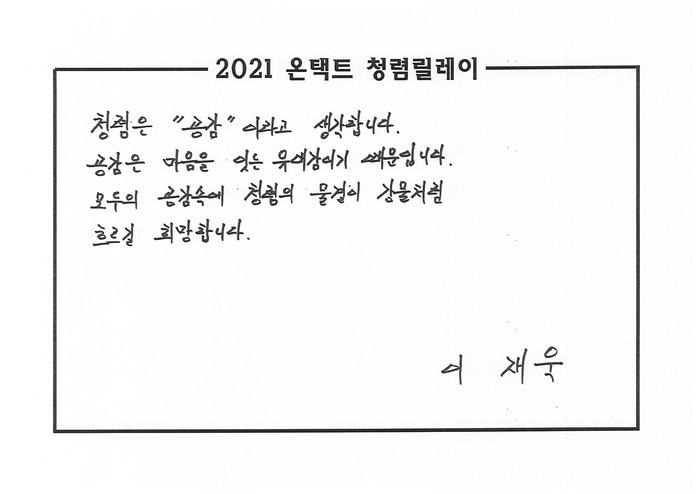 2021 온택트 청렴릴레이
청렴은 "공감" 이라고 생각합니다.
공감은 마음을 잇는 유예감이기 때문입니다.
모두의 공감속에 청렴의 물결이 강물처럼
흐르길 희망합니다.
이 재욱